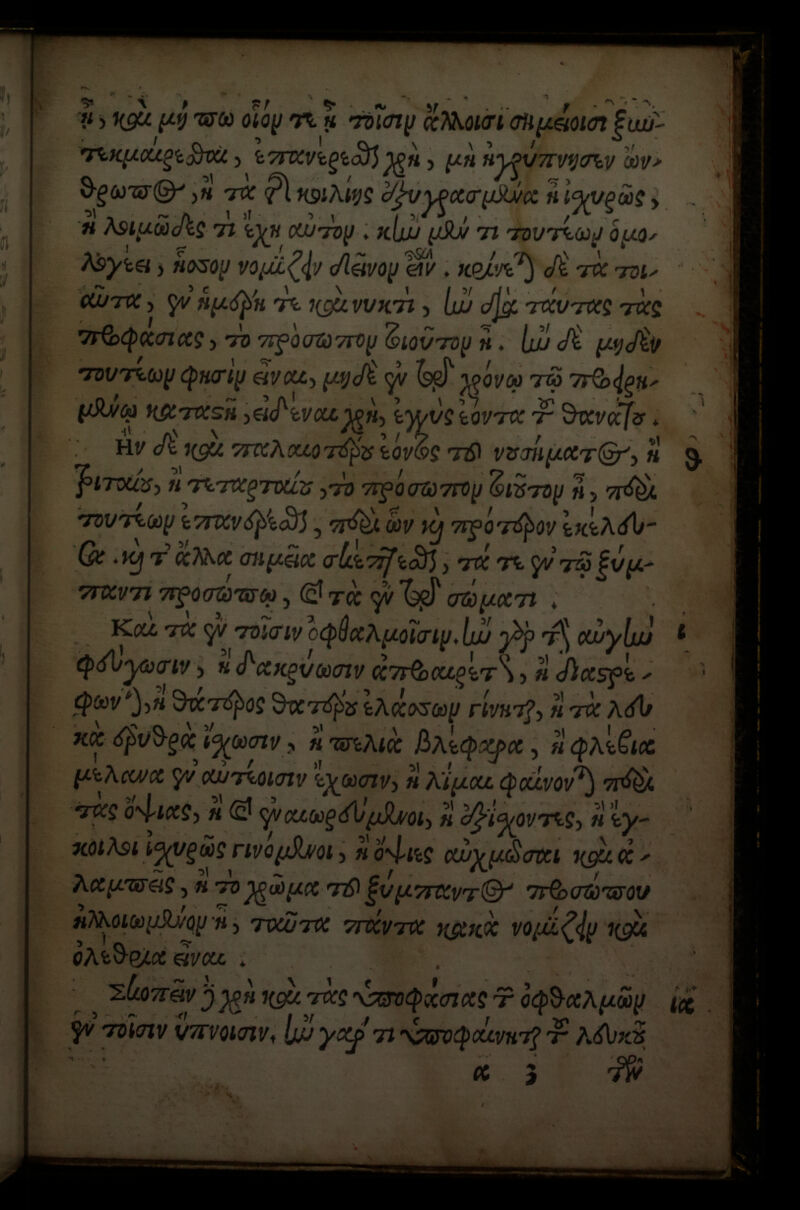 ᾖ, καὶ μή πω οἷόν τε ᾖ τοῖσιν ἄλλοισι σημείοισι ξυν-
τεκμαίρεσθαι, ἐπανέρεσθαι χρὴ, μὴ ἠγρύπνησεν ὤν-
θρωπος, ἢ τὰ τῆς κοιλίης ἐξυγρασμένα ἢ ἰσχυρῶς,
ἢ λοιμῶδές τι ἔχῃ αὐτόν. κἢν μέν τι τουτέων ὁμο-
λογέει, ἧσσον νομίζειν δεινὸν εἶναι. κρίνεται δὲ τὰ τοι-
αῦτα, ἐν ἡμέρῃ τε καὶ νυκτὶ, ἢν διὰ ταύτας τὰς
προφάσιας, τὸ πρόσωπον τοιοῦτον ᾖ. ἢν δὲ μηδὲν
τουτέων φησὶν εἶναι, μηδὲ ἐν τῷ χρόνῳ τῷ προειρη-
μένῳ καταστῇ, εἰδέναι χρὴ, ἐγγὺς ἐόντα τοῦ θανάτου.
Ἢν δὲ καὶ παλαιοτέρου ἐόντος τοῦ νοσήματος, ἢ 9
τριταίου, ἢ τεταρταίου, τὸ πρόσωπον τοιοῦτον ᾖ, περὶ
τουτέων ἐπανέρεσθαι, περὶ ὧν καὶ πρότερον ἐκέλευ-
σα. καὶ τὰ ἄλλα σημεῖα σκέπτεσθαι, τά τε ἐν τῷ ξύμ-
παντι προσώπῳ, καὶ τὰ ἐν τῷ σώματι.
Καὶ τὰ ἐν τοῖσιν ὀφθαλμοῖσιν. ἢν γὰρ τὴν αὐγὴν ι
φεύγωσιν, ἢ δακρύωσιν ἀπροαιρέτως, ἢ διαστρέ-
φωνται, ἢ θάτερος θατέρου ἐλάσσων γίνηται, ἢ τὰ λευ-
κὰ ἐρυθρὰ ἴσχωσιν, ἢ πελιὰ βλέφαρα, ἢ φλέβια
μέλανα ἐν αὐτέοισιν ἔχωσιν, ἢ λῆμαι φαίνονται περὶ
τὰς ὄψιας, ἢ καὶ ἐναιωρεύμενοι, ἢ ἐξίσχοντες, ἢ ἔγ-
κοιλοι ἰσχυρῶς γινόμενοι, ἢ ὄψιες αὐχμῶσαι καὶ ἀ-
λαμπεῖς, ἢ τὸ χρῶμα τοῦ ξύμπαντος προσώπου
ἠλλοιωμένον ᾖ, ταῦτα πάντα κακὰ νομίζειν καὶ
ὀλέθρια εἶναι.
Σκοπεῖν δὲ χρὴ καὶ τὰς ὑποφάσιας τῶν ὀφθαλμῶν ια
ἐν τοῖσιν ὕπνοισιν. ἢν γάρ τι ὑποφαίνηται τοῦ λευκοῦ
α 3 τῶν